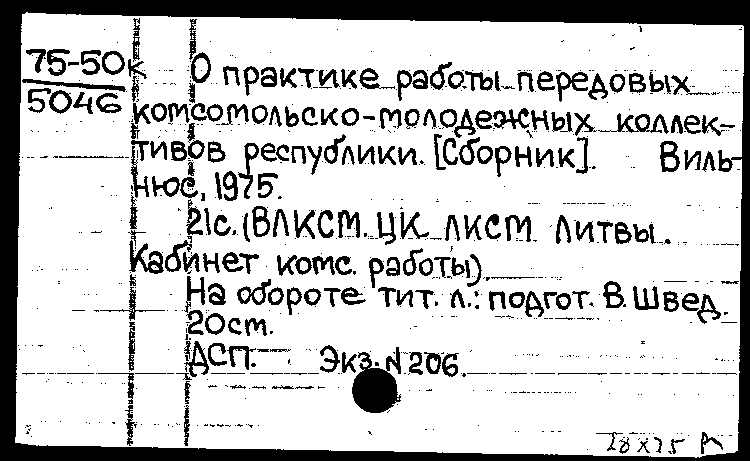 75-50к
5046
О практике работы передовых
комсомольско-молодежных коллек-
тивов республики. [Сборник]. Виль-
нюс, 1975.
21с. (ВЛКСМ. ЦК ЛКСМ Литвы.
Кабинет комс. работы).
На обороте тит. л.: подгот. В. Швед.
20см.
ДСП. Экз. № 206.
28х75